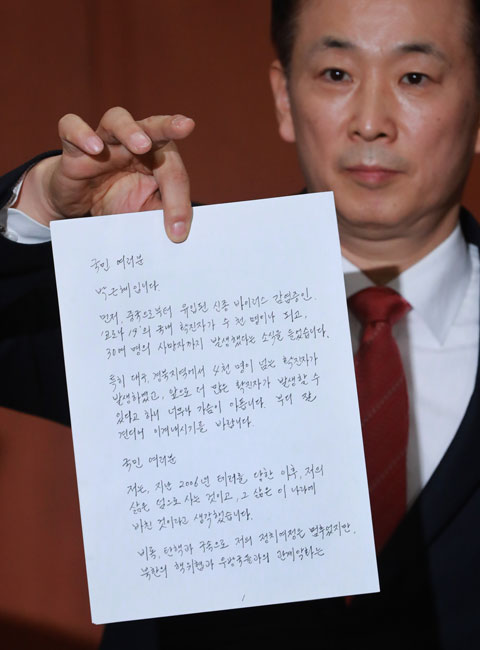 국민 여러분
박근혜입니다
먼저, 중국으로부터 유입된 신종 바이러스 감염증인.
'코로나 19'의 국내 확진자가 수 천 명이나 되고,
30여 명의 사망자까지 발생했다는 소식을 들었습니다.
특히 대구, 경북지역에서 4천 명이 넘는 확진자가
발생하였고, 앞으로 더 많은 확진자가 발생할 수
있다고 하니 너무나 가슴이 아픕니다. 부디 잘
견디어 이겨내시기를 바랍니다.
국민 여러분
저는, 지난 2006년 테러를 당한 이후, 저의
삶은 덤으로 사는 것이고, 그 삶은 이 나라에
바친 것이라고 생각했습니다.
비록, 탄핵과 구속으로 저의 정치여정은 멈추었지만,
북한의 핵위협과 우방국들과의 관계악화는
1